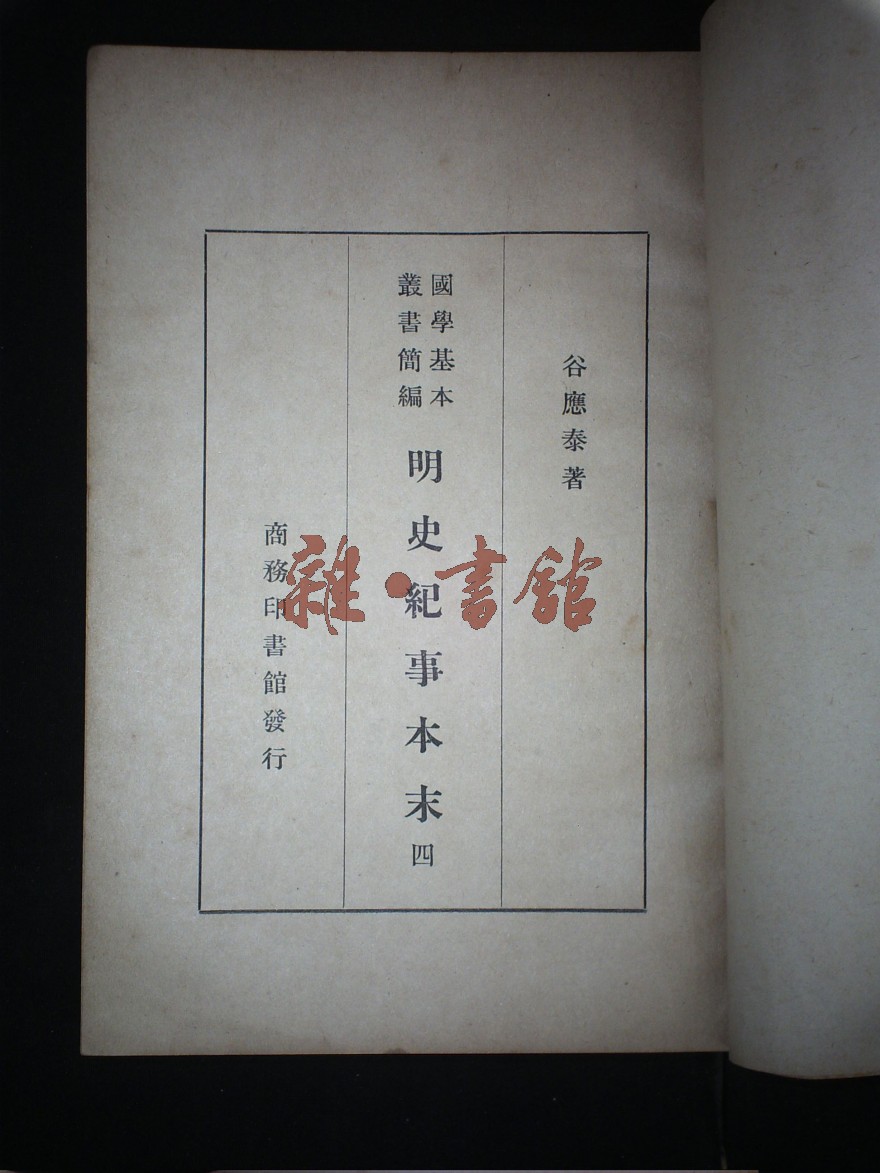 谷應泰著
國學基本
叢書簡編
明史紀事本末四
商務印書館發行
雜·書館